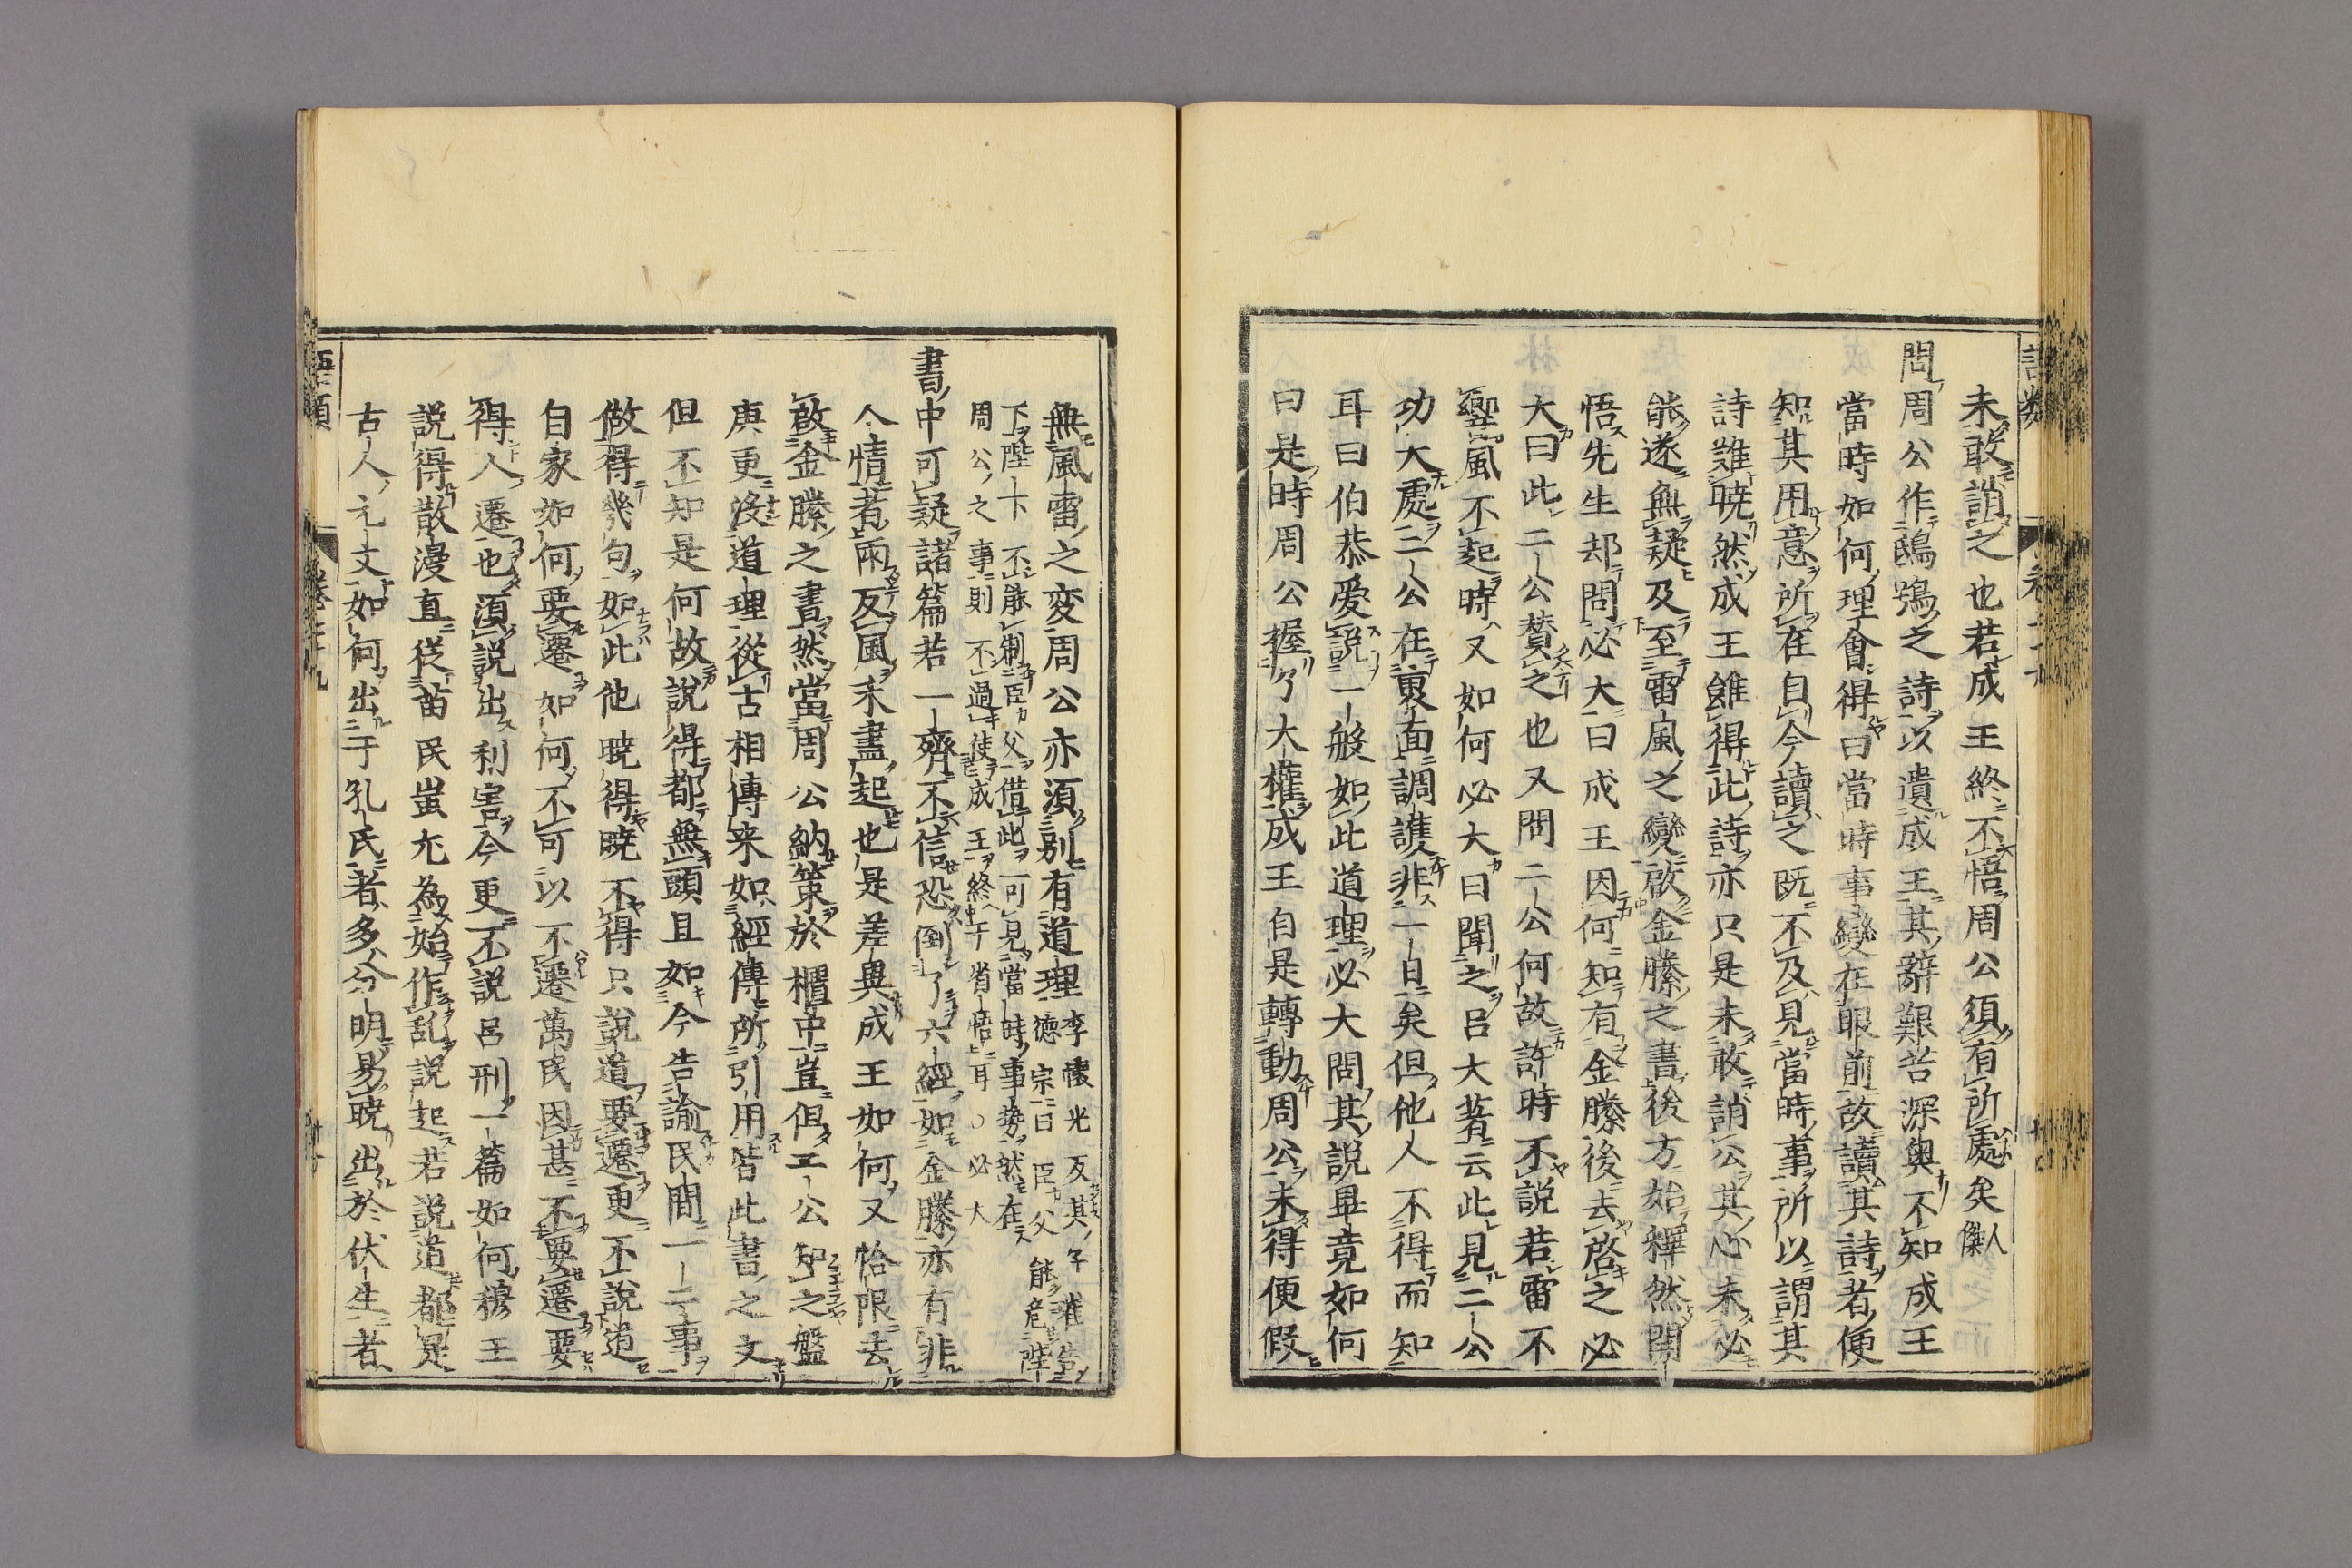 未敢誚之也若成王終不悟周公須有所處矣人傑
問周公作鴟鴞之詩以遺成王其辭艱苦深奥不知成王
當時如何理會得曰當時事變在眼前故讀其詩者便
知其用意所在自今讀之既不及見當時事所以謂其
詩難暁然成王雖得此詩亦只是未敢誚公其心未必
能遂無疑及至雷風之變啟金縢之書後方始釋然開
悟先生却問必大曰成王因何知有金縢後去啓之必
大曰此二公賛之也又問二公何故許時不説若雷不
響風不起時又如何必大曰聞之吕大著云此見二公
功大處二公在裏面調護非一日矣但他人不得而知
耳曰伯恭愛説一般如此道理必大問其説畢竟如何
曰是時周公握了大權成王自是轉動周公未得便假
無風雷之変周公亦須别有道理李懐光反其子璀告
德宗曰臣父能危陛
下陛下不能制臣父借此可見當時事勢然在
周公之事則不過使成王終于省悟耳○必大
書中可疑諸篇若一齊不信恐倒了六經如金縢亦有非
人情者兩反風禾盡起也是差異成王如何又恰限去
啟金縢之書然當周公納策於櫃中豈但二公知之盤
庚更没道理從古相傳来如經傳所引用皆此書之文
但不知是何故説得都無頭且如今告諭民間一二事
做得幾句如此他暁得暁不得只説道要遷更不説道
自家如何要遷如何不可以不遷萬民因甚不要遷要
得人遷也須説出利害今更不説吕刑一篇如何穆王
説得散漫直従苗民蚩尤為始作乱説起若説道都是
古人元文如何出于孔氏者多分明易暁出於伏生者
語類